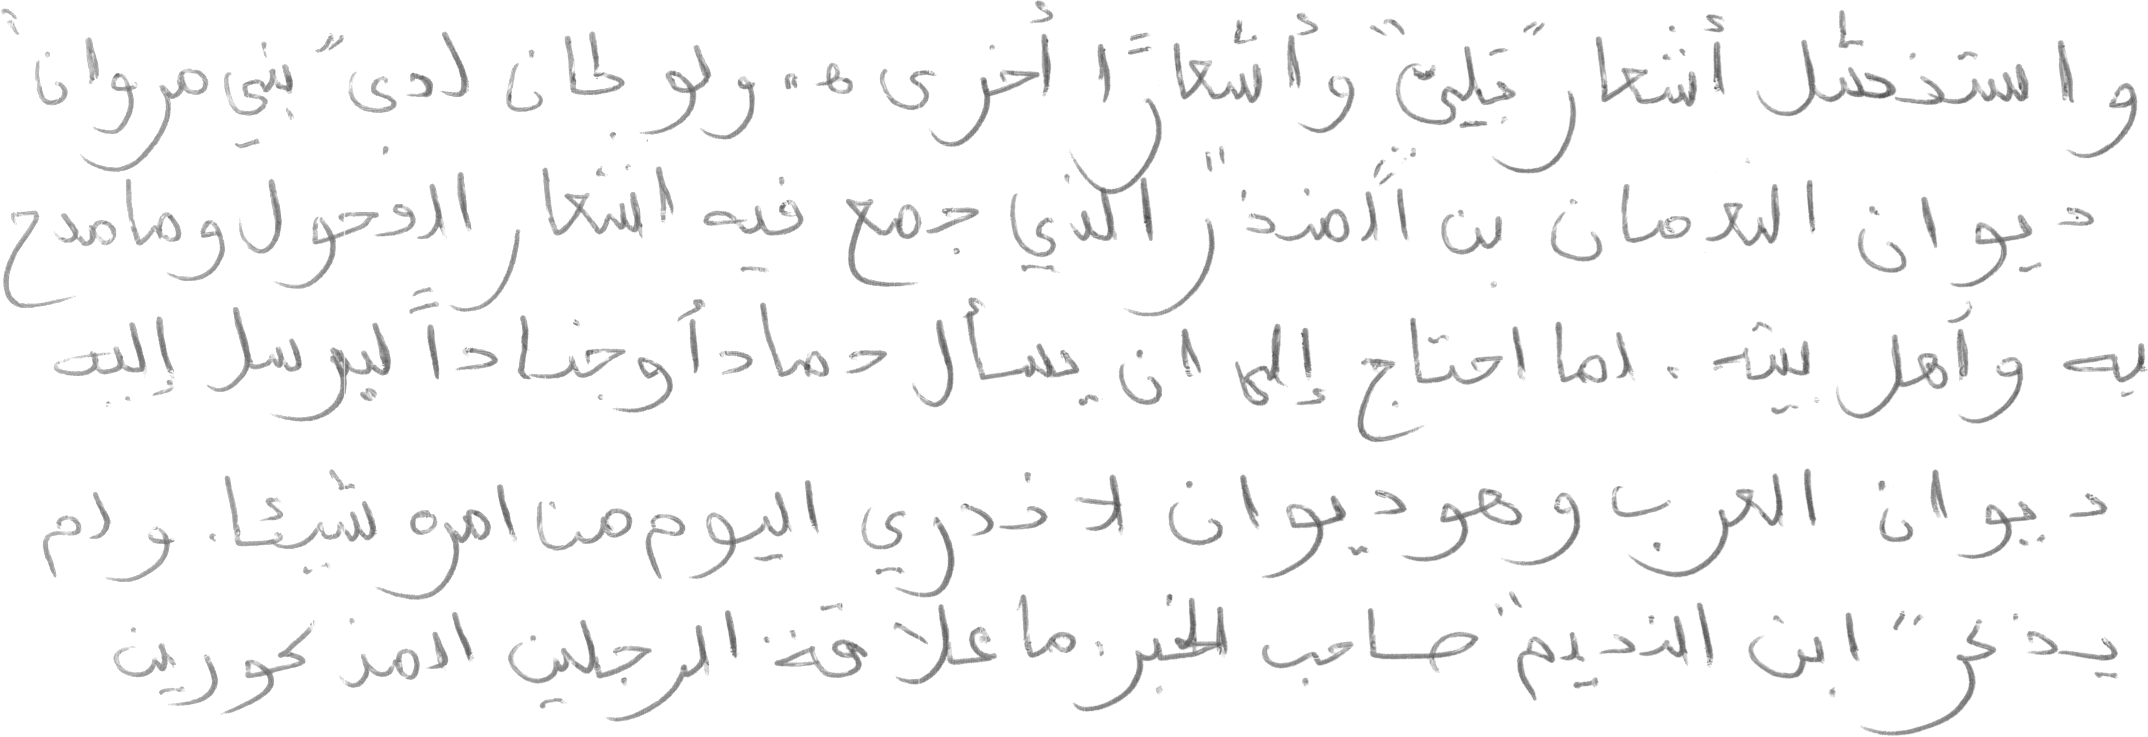 واستذخئل أشعار "قبلي" وأشعارًا أخرى ه.. ولو كان لدى "بني مروان"
ديوان النعمان بن "المنذر" الذي جمع فيه اشعار الفحول وما مدح
به وأهل بيته. لما احتاج إلى ان يسأل حماداً وجناداً ليرسل إليه
ديوان العرب وهو ديوان لا ندري اليوم من امره شيئا. ولم
يذكر "ابن النديم" صاحب الخبر. ما علاقة الرجلين المذكورين